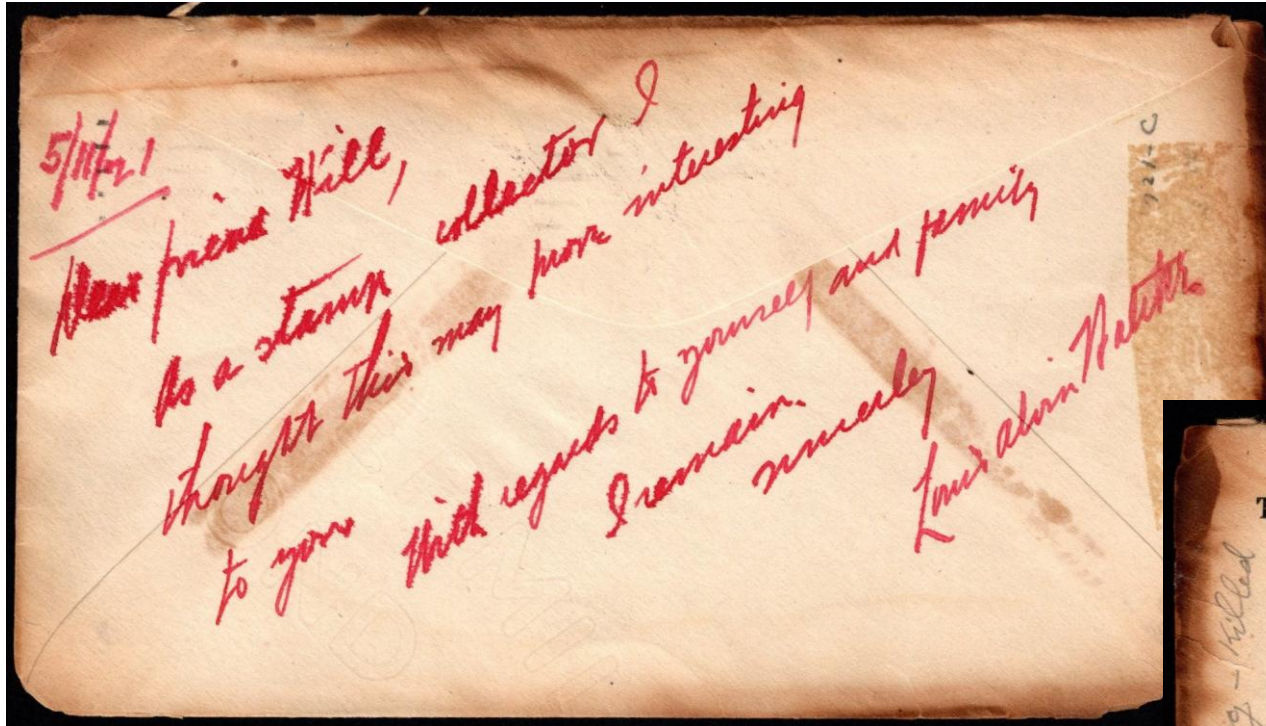 5/11/21
Dear friend Will,
As a stamp collector I
thought this may prove interesting
to you With regards to yourself and family
I remain.
sincerely
Louis Alvin
221-C
T
g - Killed